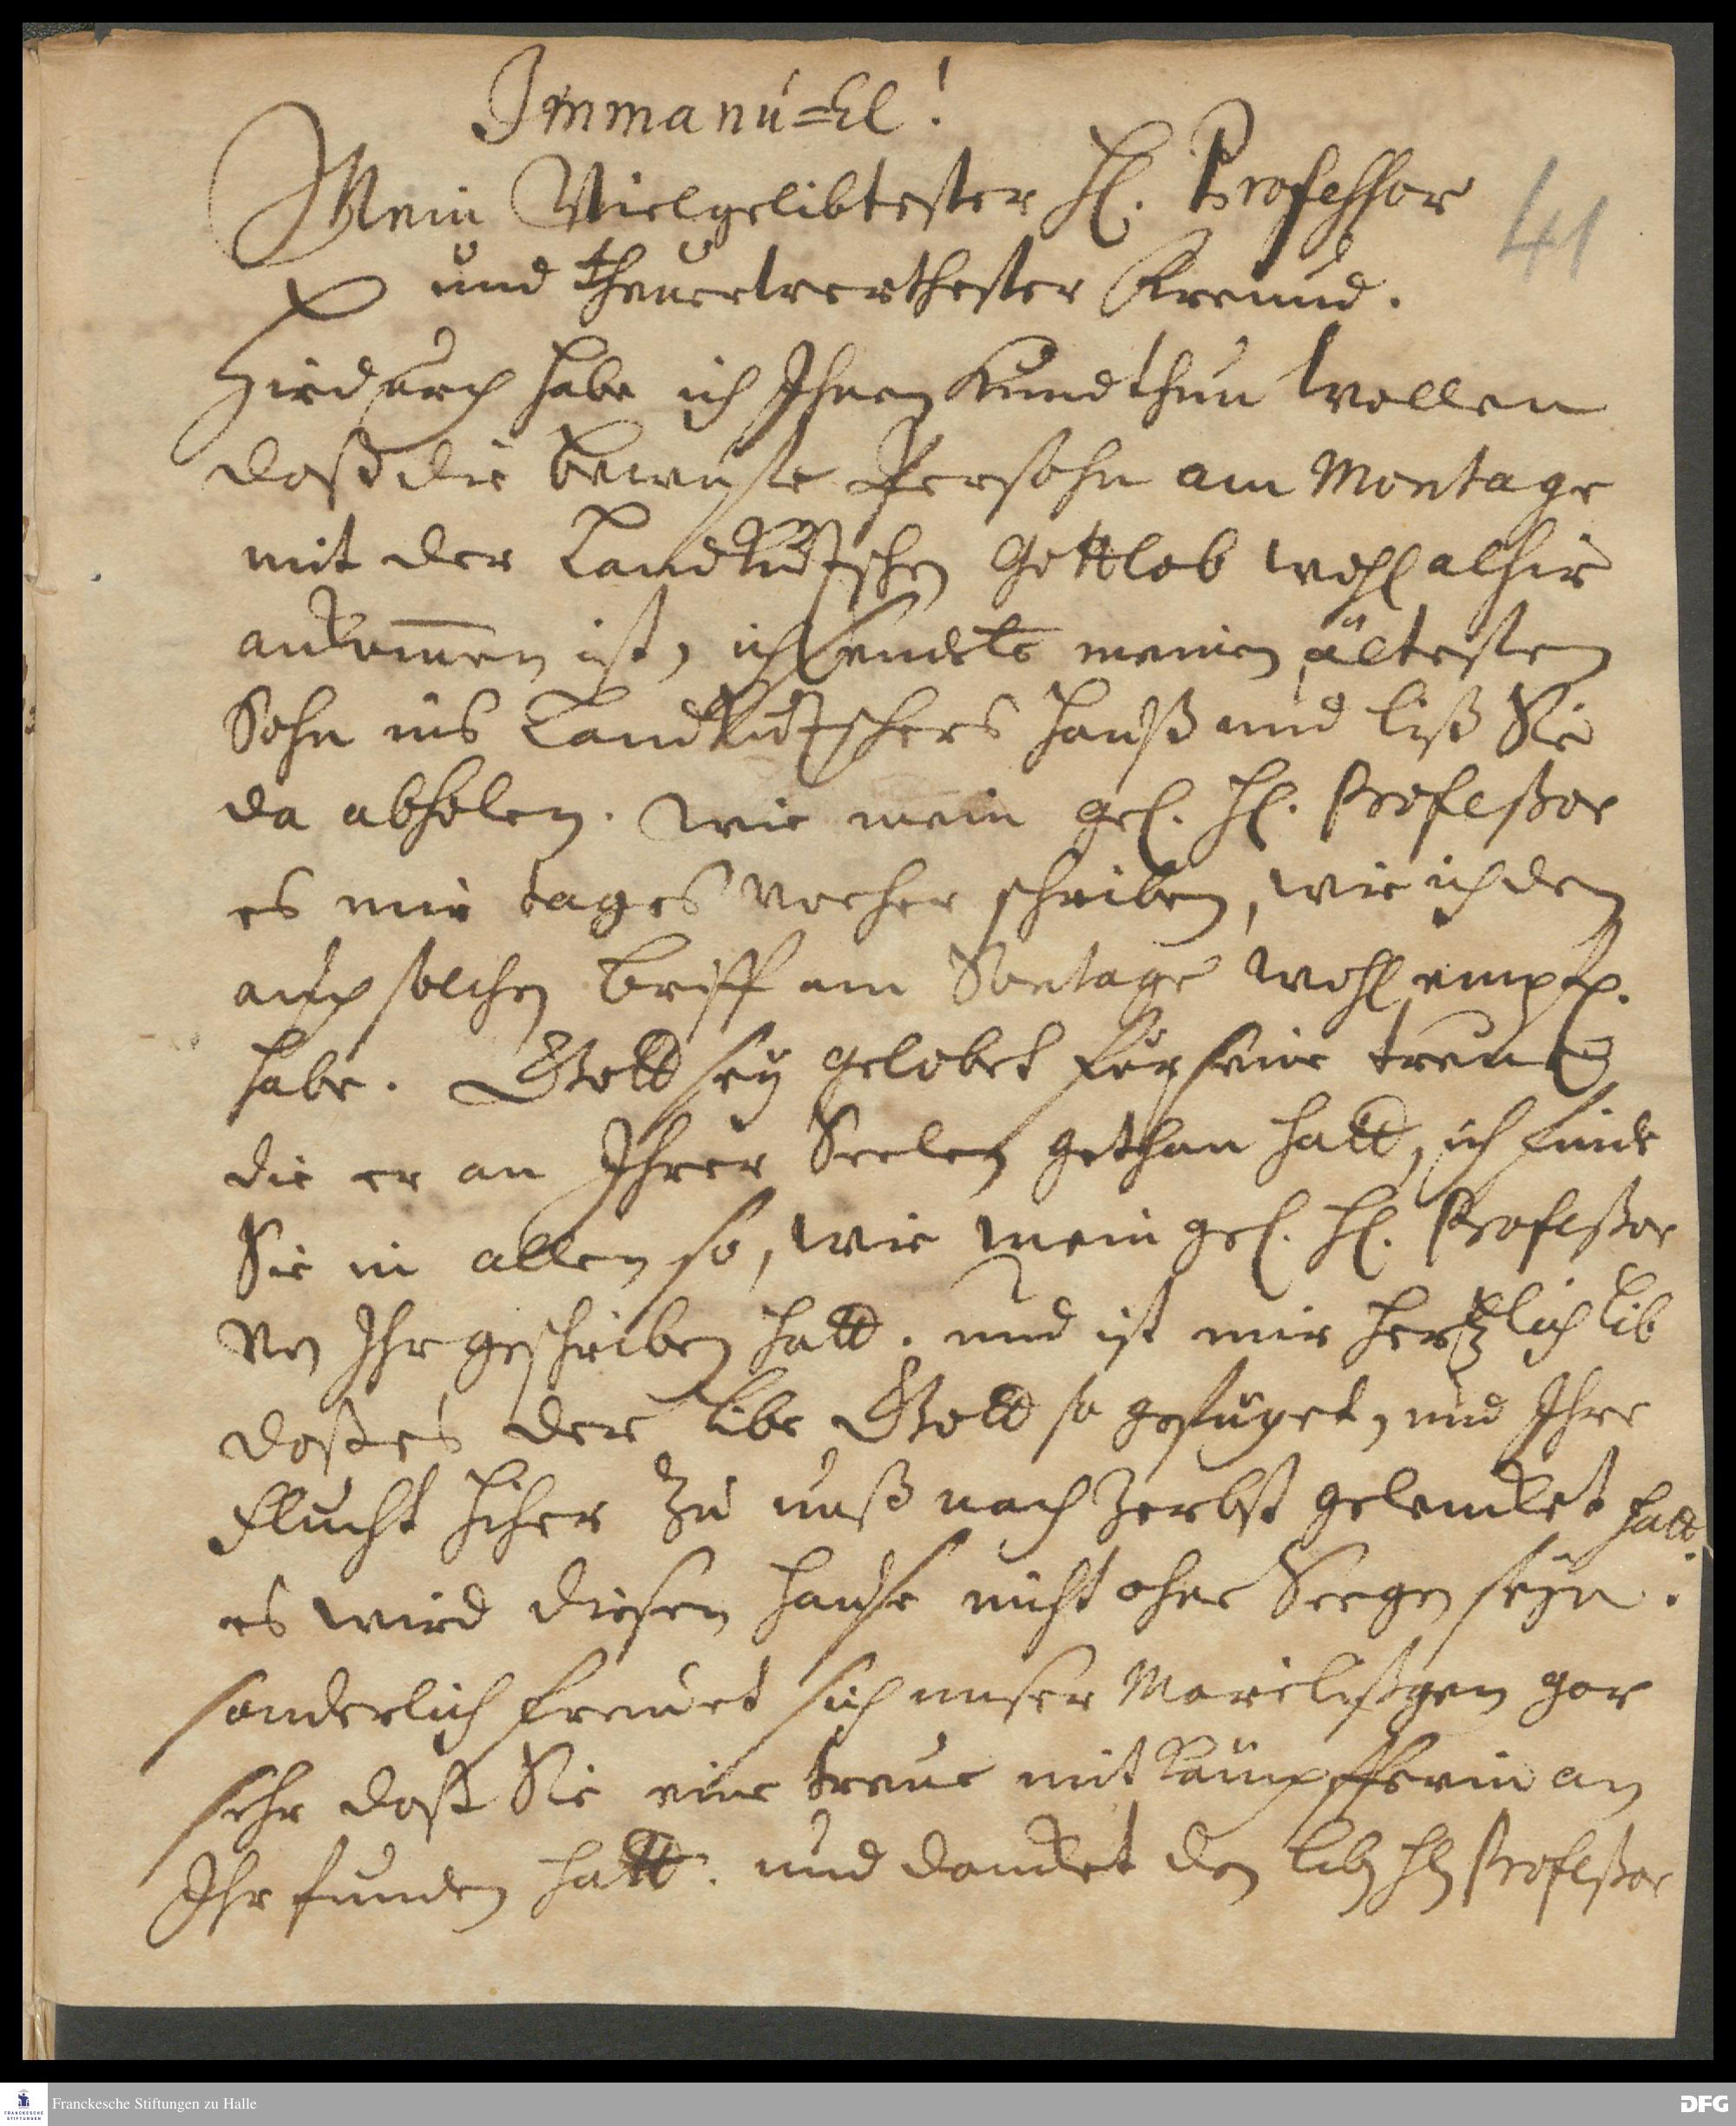 Immanu=El!
Mein Vielgelibtester H. Professor
41
und theuerwerthester Freund.
Hirdurch habe ich Ihnen Kundthun wollen
daß die bewuste Persohn am Montage
mit der Landkutschen Gottlob wohl alhir
ankom̄en ist, ich sendete meinen ältesten
Sohn ins Landkutschers Hauß und liß Sie
da abholen. wie mein gel. H. Profeßor
es mir tages vorher schriben, wie ich den
auch solchen briff am Sontage wohl empf.
habe. Gott sey gelobet für seine treue
die er an Ihrer Seelen gethan hatt, ich finde
Sie in allen so, wie mein gel. H. Profeßor
von Ihr geschriben hatt. und ist mir hertzlich lib
daß es der libe Gott so gefüget, und Ihre
Flucht hiher zu unß nach Zerbst gelencket hatt.
es wird diesen Hause nicht ohne Seegen seyn.
sonderlich freuet sich unser Marilißgen gar
sehr daß Sie eine treue mit Kämpfferin an
Ihr funden hatt. und dancket den liben Hn Profeßor
Franckesche Stiftungen zu Halle
DFG